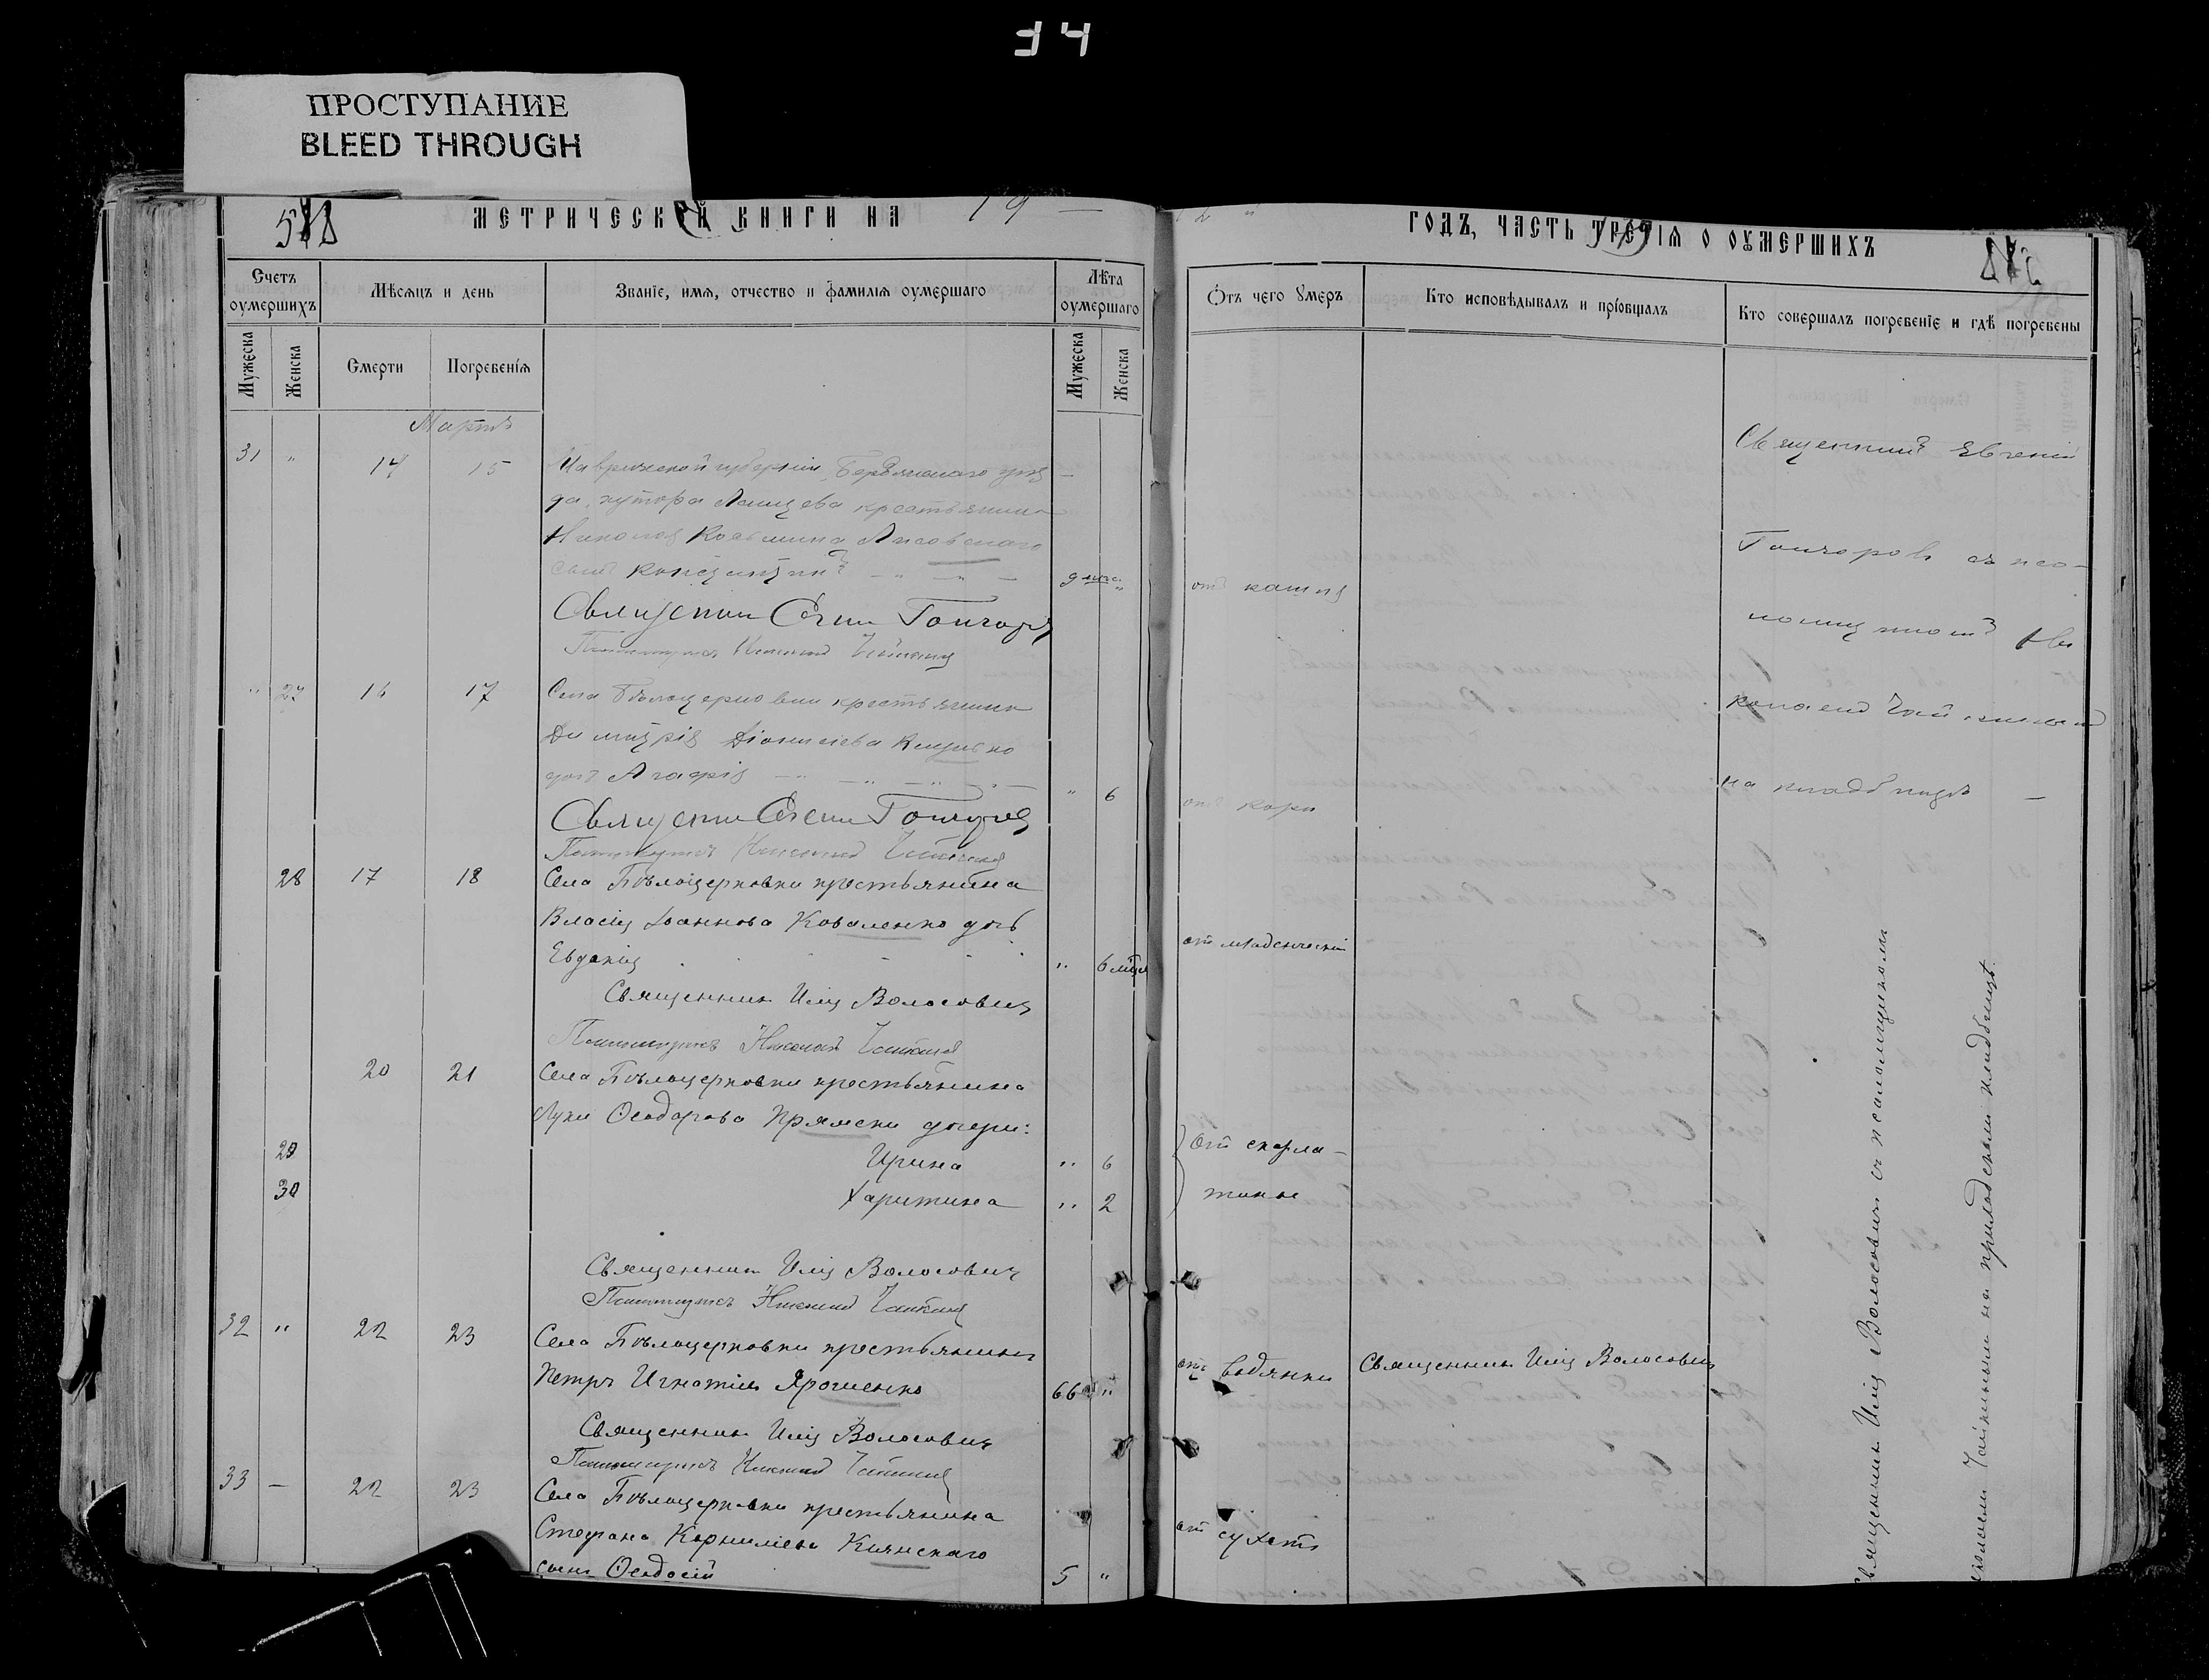 ПРОСТУПАНИЕ
BLEED THROUGH
МЕТРИЧЕСКОЙ КНИГИ НА 19
ГОДЪ, ЧАСТЬ ТРЕТІѦ О ОУМЕРШИХЪ
Счетъ оумершихъ
Мѣсяцъ и день
Званіе, имя, отчество и фамилія оумершаго
Лѣта оумершаго
Отъ чего умеръ
Кто исповѣдывалъ и пріобщалъ
Кто совершалъ погребеніе и гдѣ погребены
Мужеска
Женска
Смерти
Погребенія
Мужеска
Женска
Мартъ
31 " 14 15 Таврической губерніи, Бердянскаго уѣз
да, хутора крестьянина
Николая Косьмина Лисовскаго
сынъ Константинъ 9 мѣс. " отъ кашля
Священникъ Евгеній Гончаровъ
Псаломщикъ Николай
" 27 16 17 Села Бѣлоцерковки крестьянина
Димитрія Діонисіева
дочь Агафія " 6 отъ кори
Священникъ Евгеній Гончаровъ
Псаломщикъ Николай
28 17 18 Села Бѣлоцерковки крестьянина
Власія Іоаннова Коваленко дочь
Евдокія " 6 мѣся отъ младенческой
Священникъ Илія Волосовичъ
Псаломщикъ Николай
20 21 Села Бѣлоцерковки крестьянина
Луки Ѳеодорова дочери:
29 Ирина " 6 отъ скарла-
30 Харитина " 2 тины
Священникъ Илія Волосовичъ
Псаломщикъ Николай
32 " 22 23 Села Бѣлоцерковки крестьянинъ
Петръ Игнатіевъ Ярошенко 66 " отъ водянки Священникъ Илія Волосовичъ
Священникъ Илія Волосовичъ
Псаломщикъ Николай
33 — 22 23 Села Бѣлоцерковки крестьянина
Стефана Корниліева Кіянскаго
сынъ Ѳеодосій 5 " отъ сухотъ
Священникъ Евгеній
Гончаровъ съ пса-
ломщикомъ Ни
колаемъ
на кладбищѣ —
Священникъ Илія Волосовичъ съ псаломщикомъ
на приходскомъ кладбищѣ.